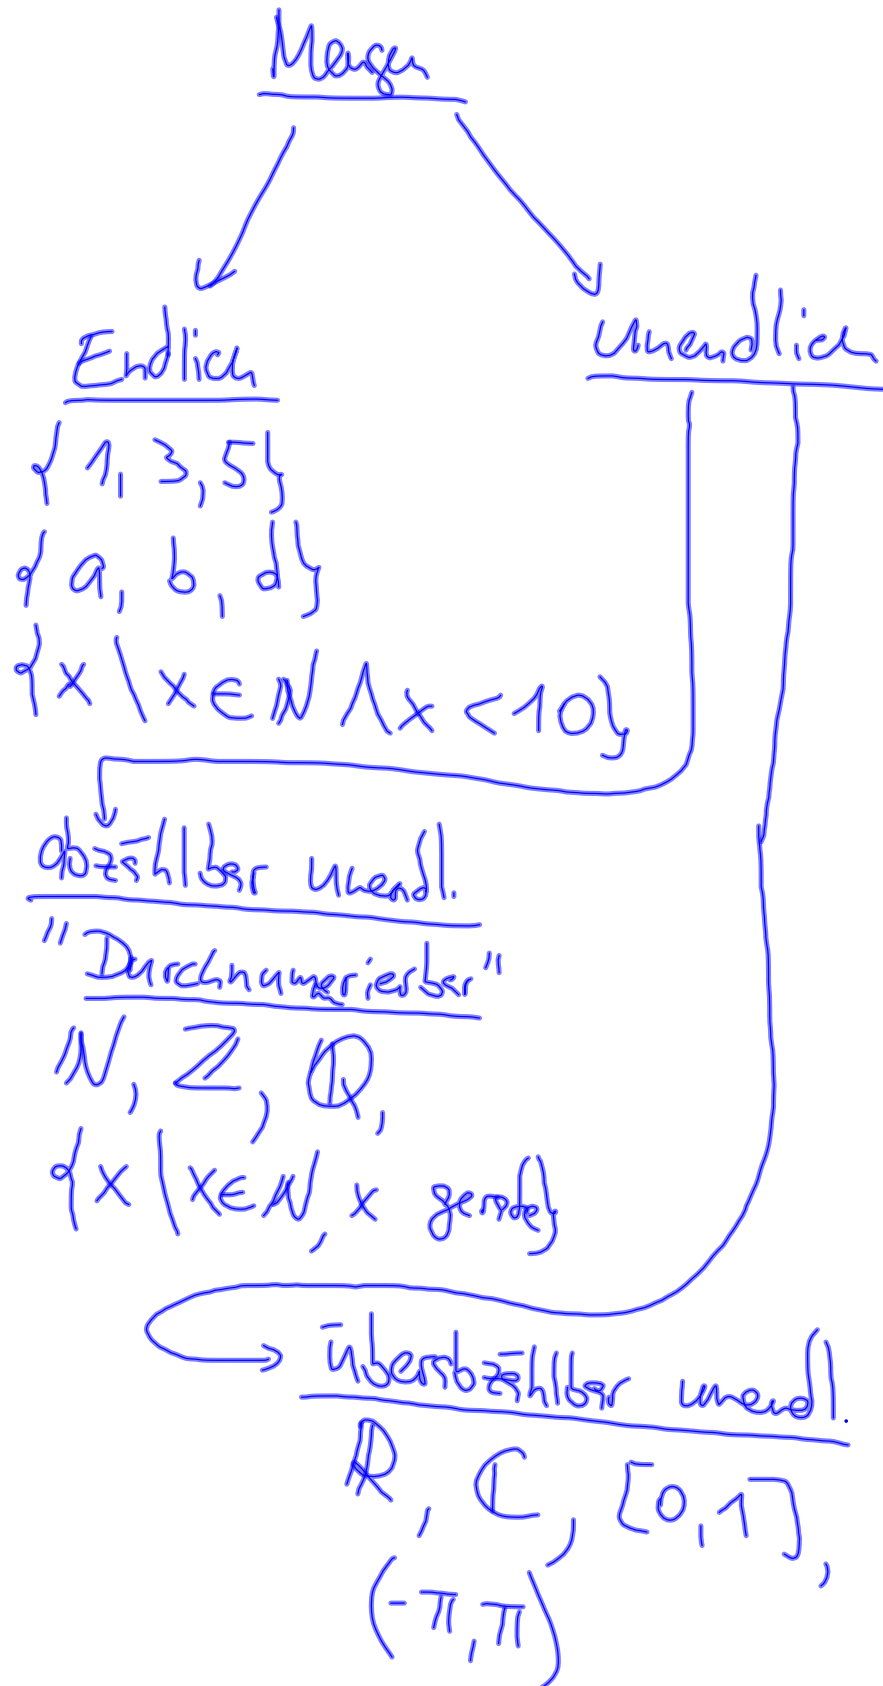 Mengen
Endlich
unendlich
{1, 3, 5}
{a, b, d}
{x | x ∈ ℕ ∧ x < 10}
abzählbar unendl.
"Durchnumerierbar"
ℕ, ℤ, ℚ,
{x | x ∈ ℕ, x gerade}
überabzählbar unendl.
ℝ, ℂ, [0,1],
(-π, π)